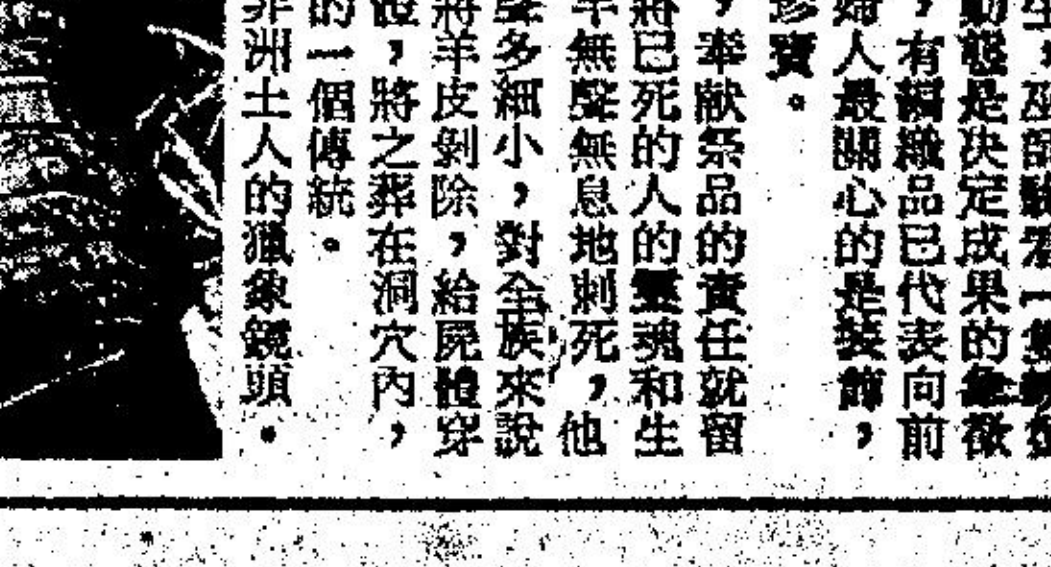 有編織品已代表向前
婦人最關心的是裝飾，
寶。
，奉献祭品的責任就留
將已死的人的靈魂和生
羊無聲無息地刺死，他
聲多細小，對全族來說
將羊皮剝除，給屍體穿
體，將之葬在洞穴內，
的一個傳統。
非洲土人的獵象鏡頭。